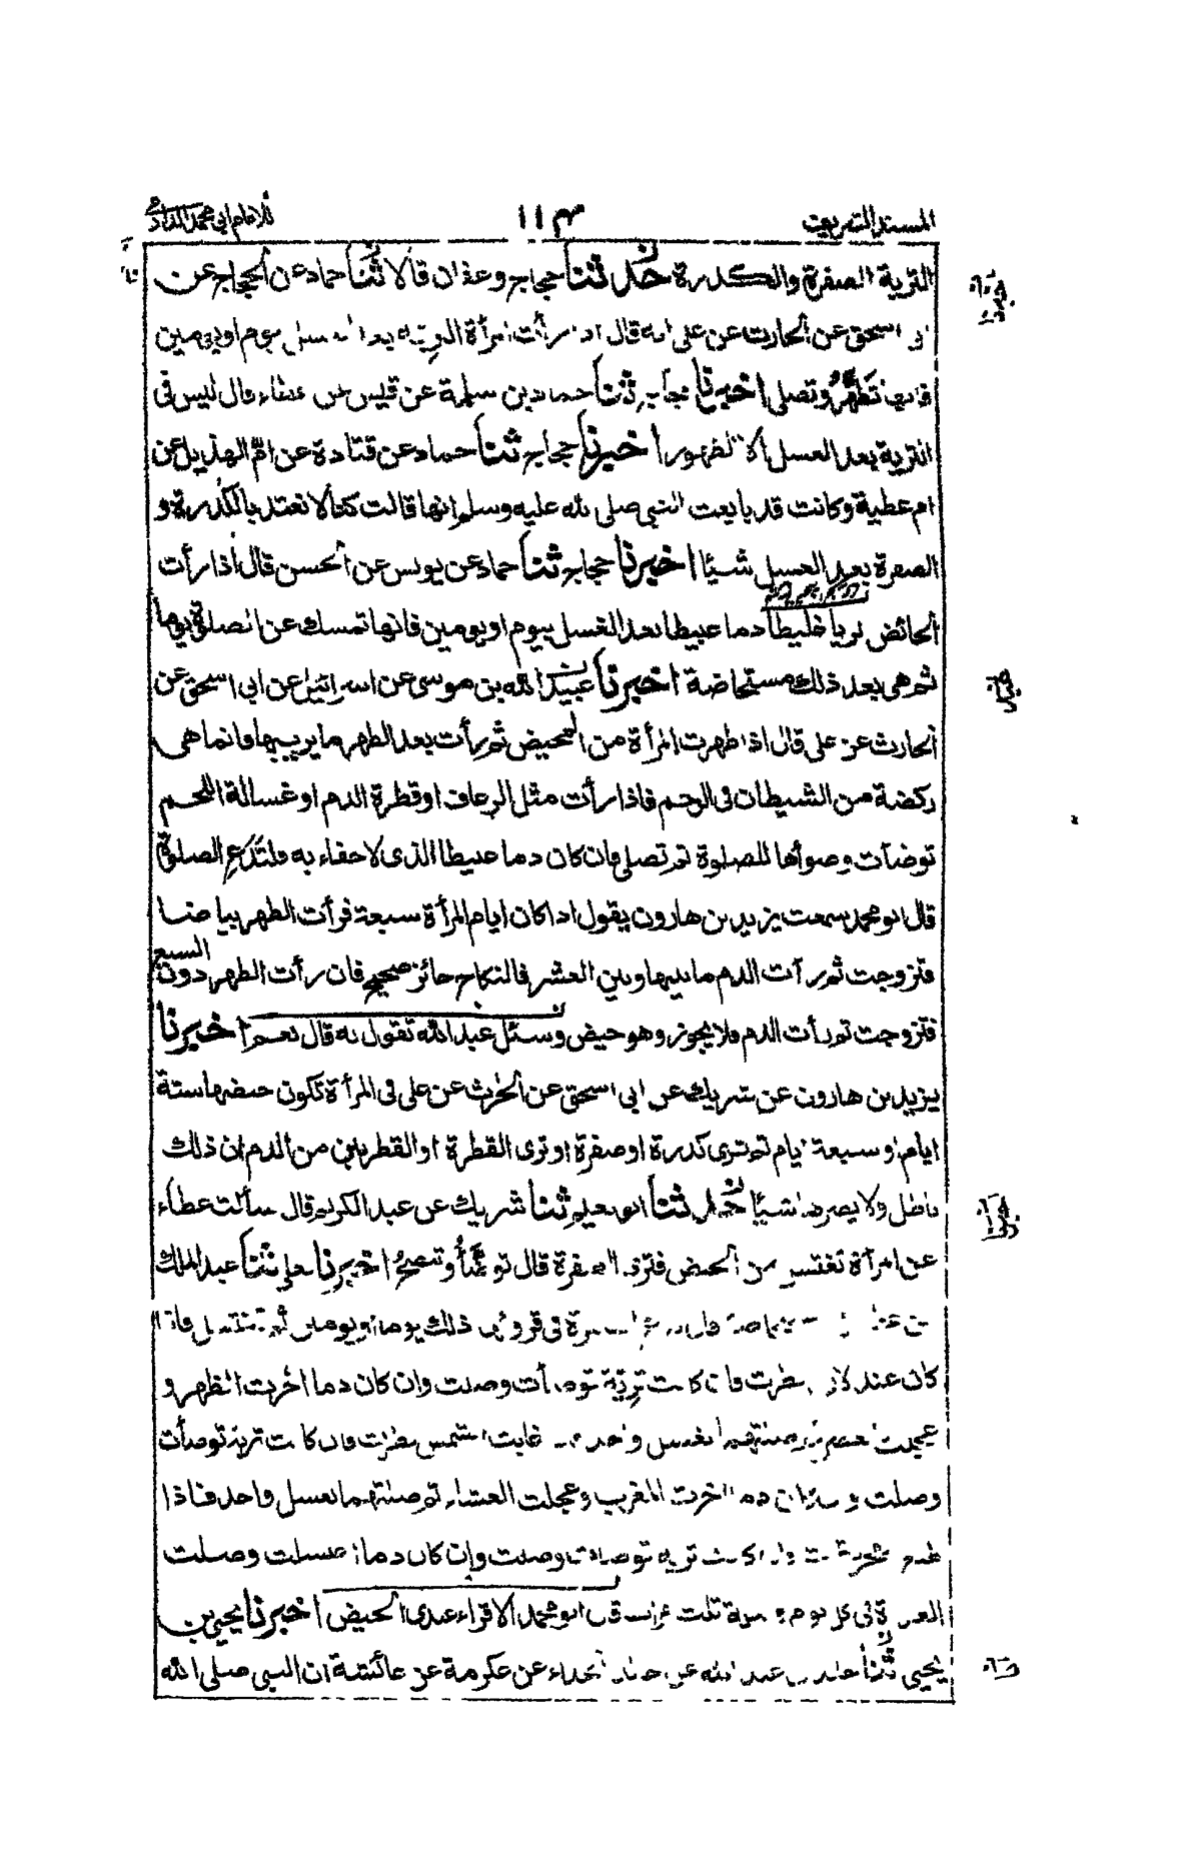 المسند الشريف
١١٣
للامام ابي محمد الدارمي
الترية الصفرة والكدرة حدثنا حجاج وعفان قالا ثنا حماد عن الحجاج عن
ابي اسحق عن الحارث عن على انه قال اذا رأت المرأة الترية بعد الغسل بيوم او يومين
فانها تطهر وتصلى اخبرنا حجاج ثنا حماد بن سلمة عن قيس عن عطاء قال ليس فى
الترية بعد الغسل الا الطهور اخبرنا حجاج ثنا حماد عن قتادة عن ام الهذيل عن
ام عطية وكانت قد بايعت النبى صلى الله عليه وسلم انها قالت كنا لا نعتد بالكدرة و
الصفرة بعد الغسل شيئا اخبرنا حجاج ثنا حماد عن يونس عن الحسن قال اذا رأت
الحائض دما عبيطا بعد الغسل بيوم او يومين فانها تمسك عن الصلوة يوما
ثم هى بعد ذلك مستحاضة اخبرنا عبيد الله بن موسى عن اسرائيل عن ابى اسحق عن
الحارث عن على قال اذا طهرت المرأة من المحيض ثم رأت بعد الطهر ما يريبها فانما هى
ركضة من الشيطان فى الرحم فاذا رأت مثل الرعاف او قطرة الدم او غسالة اللحم
توضأت وضوأها للصلوة ثم تصلى فان كان دما عبيطا الذى لا خفاء به فلتدع الصلوة
قال ابو محمد سمعت يزيد بن هارون يقول اذا كان ايام المرأة سبعة فرأت الطهر بياضا
فتزوجت ثم رأت الدم ما بينها وبين العشر فالنكاح جائز صحيح فان رأت الطهر دون السبع
فتزوجت ثم رأت الدم فلا يجوز وهو حيض وسئل عبد الله تقول به قال نعم اخبرنا
يزيد بن هارون عن شريك عن ابى اسحق عن الحرث عن على فى المرأة تكون حيضها ستة
ايام او سبعة ايام ثم ترى كدرة او صفرة او ترى القطرة او القطرتين من الدم ان ذلك
باطل ولا يضرها شيئا حدثنا ابو نعيم ثنا شريك عن عبد الكريم قال سألت عطاء
عن امرأة تغتسل من الحيض فترى الصفرة قال توضأ وتنضح اخبرنا يعلى ثنا عبد الملك
عن عطاء فى ذلك يوما او يومين ثم تغتسل فاذا
كان عند نظرت فان كانت ترية توضأت وصلت وان كان دما اخرت الظهر و
عجلت العصر ثم صلتهما بغسل واحد غابت الشمس نظرت فان كانت ترية توضأت
وصلت وان كان دما اخرت المغرب وعجلت العشاء ثم صلتهما بغسل واحد فاذا
كانت ترية توضأت وصلت وان كان دما اغتسلت وصلت
فى كل يوم وليلة ثلث مرات قال ابو محمد الاقراء عندى الحيض اخبرنا يحيى بن
يحيى ثنا خالد بن عبد الله عن خالد الحذاء عن عكرمة عن عائشة ان النبى صلى الله